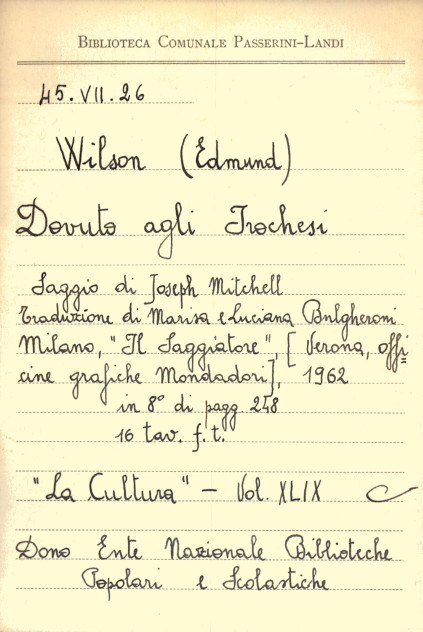 BIBLIOTECA COMUNALE PASSERINI-LANDI
45.VII.26
Wilson (Edmund)
Dovuto agli Irochesi
Saggio di Joseph Mitchell
Traduzione di Marisa e Luciana Bulgheroni
Milano, "Il Saggiatore", [Verona, offi=
cine grafiche Mondadori], 1962
in 8° di pagg 248
16 tav. f.t.
"La Cultura" - Vol. XLIX
Dono Ente Nazionale Biblioteche
Popolari e Scolastiche